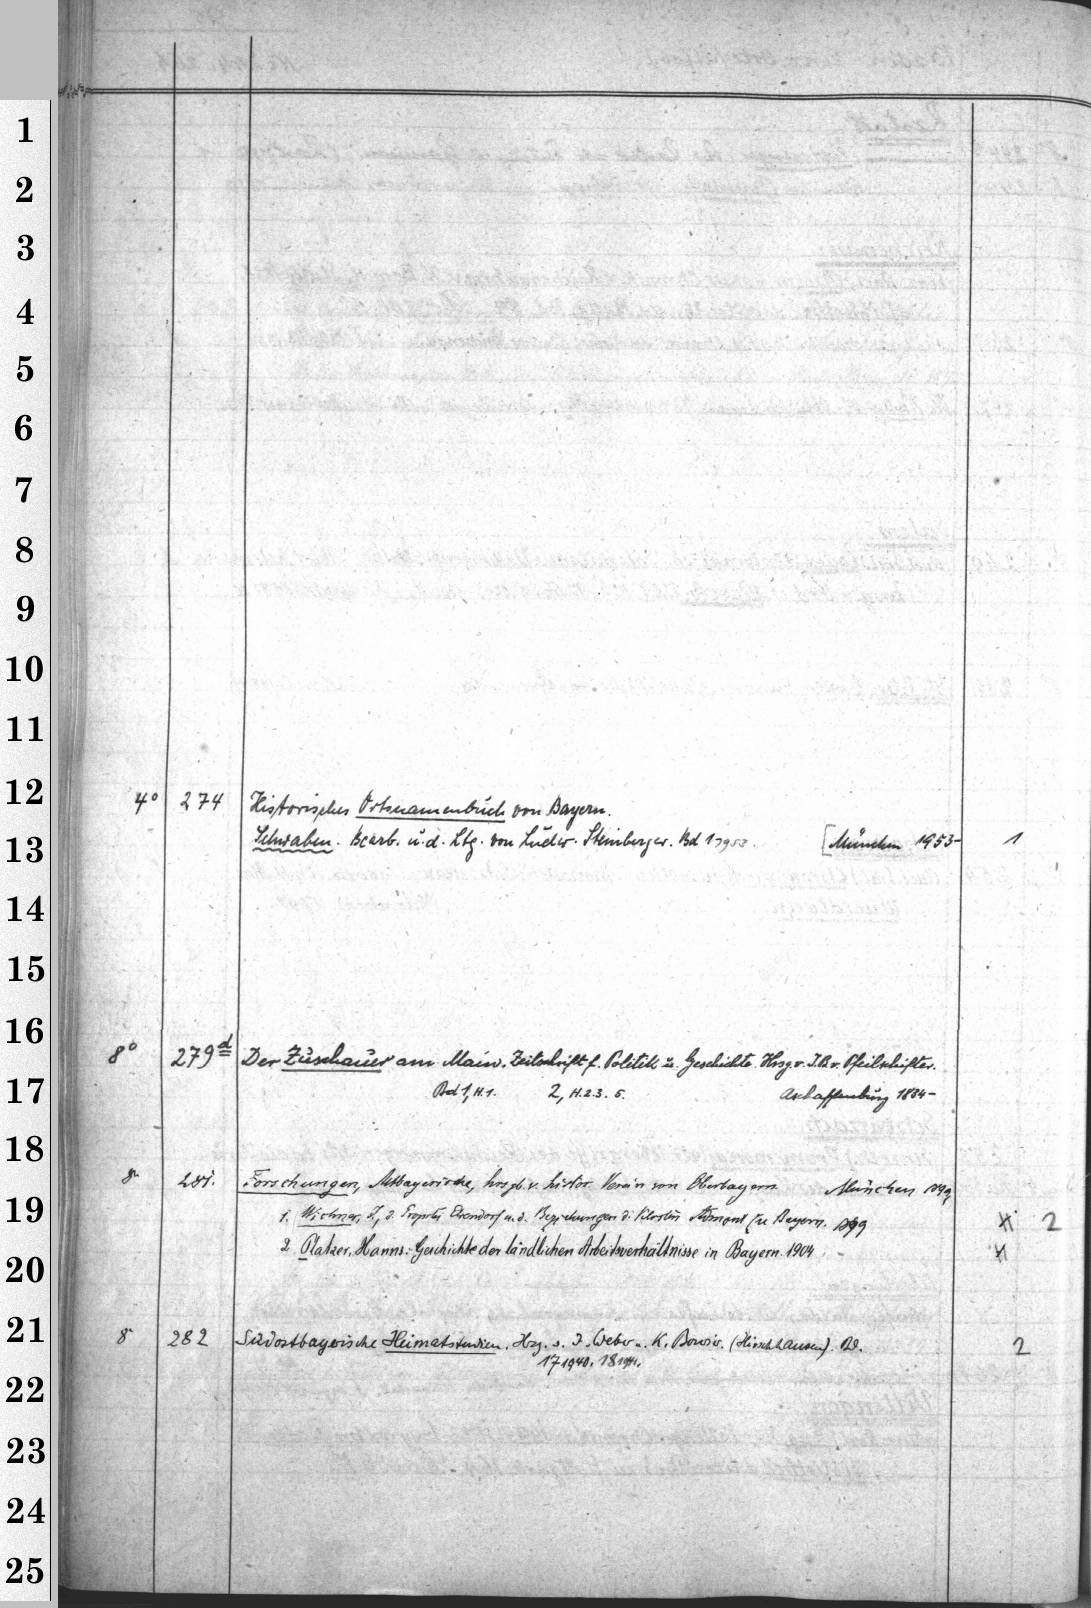 1
2
3
4
5
6
7
8
9
10
11
12
4° 274 Historisches Ortsnamenbuch von Bayern.
13
Schwaben. Bearb. u. d. Ltg. von Ludw. Steinberger. Bd 1 1952. [München 1953- 1
14
15
16
8° 279d Der Zuschauer am Main. Zeitschrift f. Politik u. Geschichte. Hrsg. v. J. B. v. Pfeilschifter.
17
Bd 1, H. 1. 2, H. 2. 3. 5. Aschaffenburg 1834-
18
8° 281. Forschungen, Altbayerische, hrsgb. v. histor. Verein von Oberbayern. München
19
1. Wichner, J., d. Propstei Elsendorf u. d. Beziehungen d. Klosters Admont zu Bayern. 2
2 Platzer, Hanns: Geschichte der ländlichen Arbeitsverhältnisse in Bayern. 1904
20
21
8° 282 Südostbayerische Heimatstudien. Hrg. v. J. Weber u. K. (Hirschhausen). Bd. 2
17 1940. 18 1941.
22
23
24
25